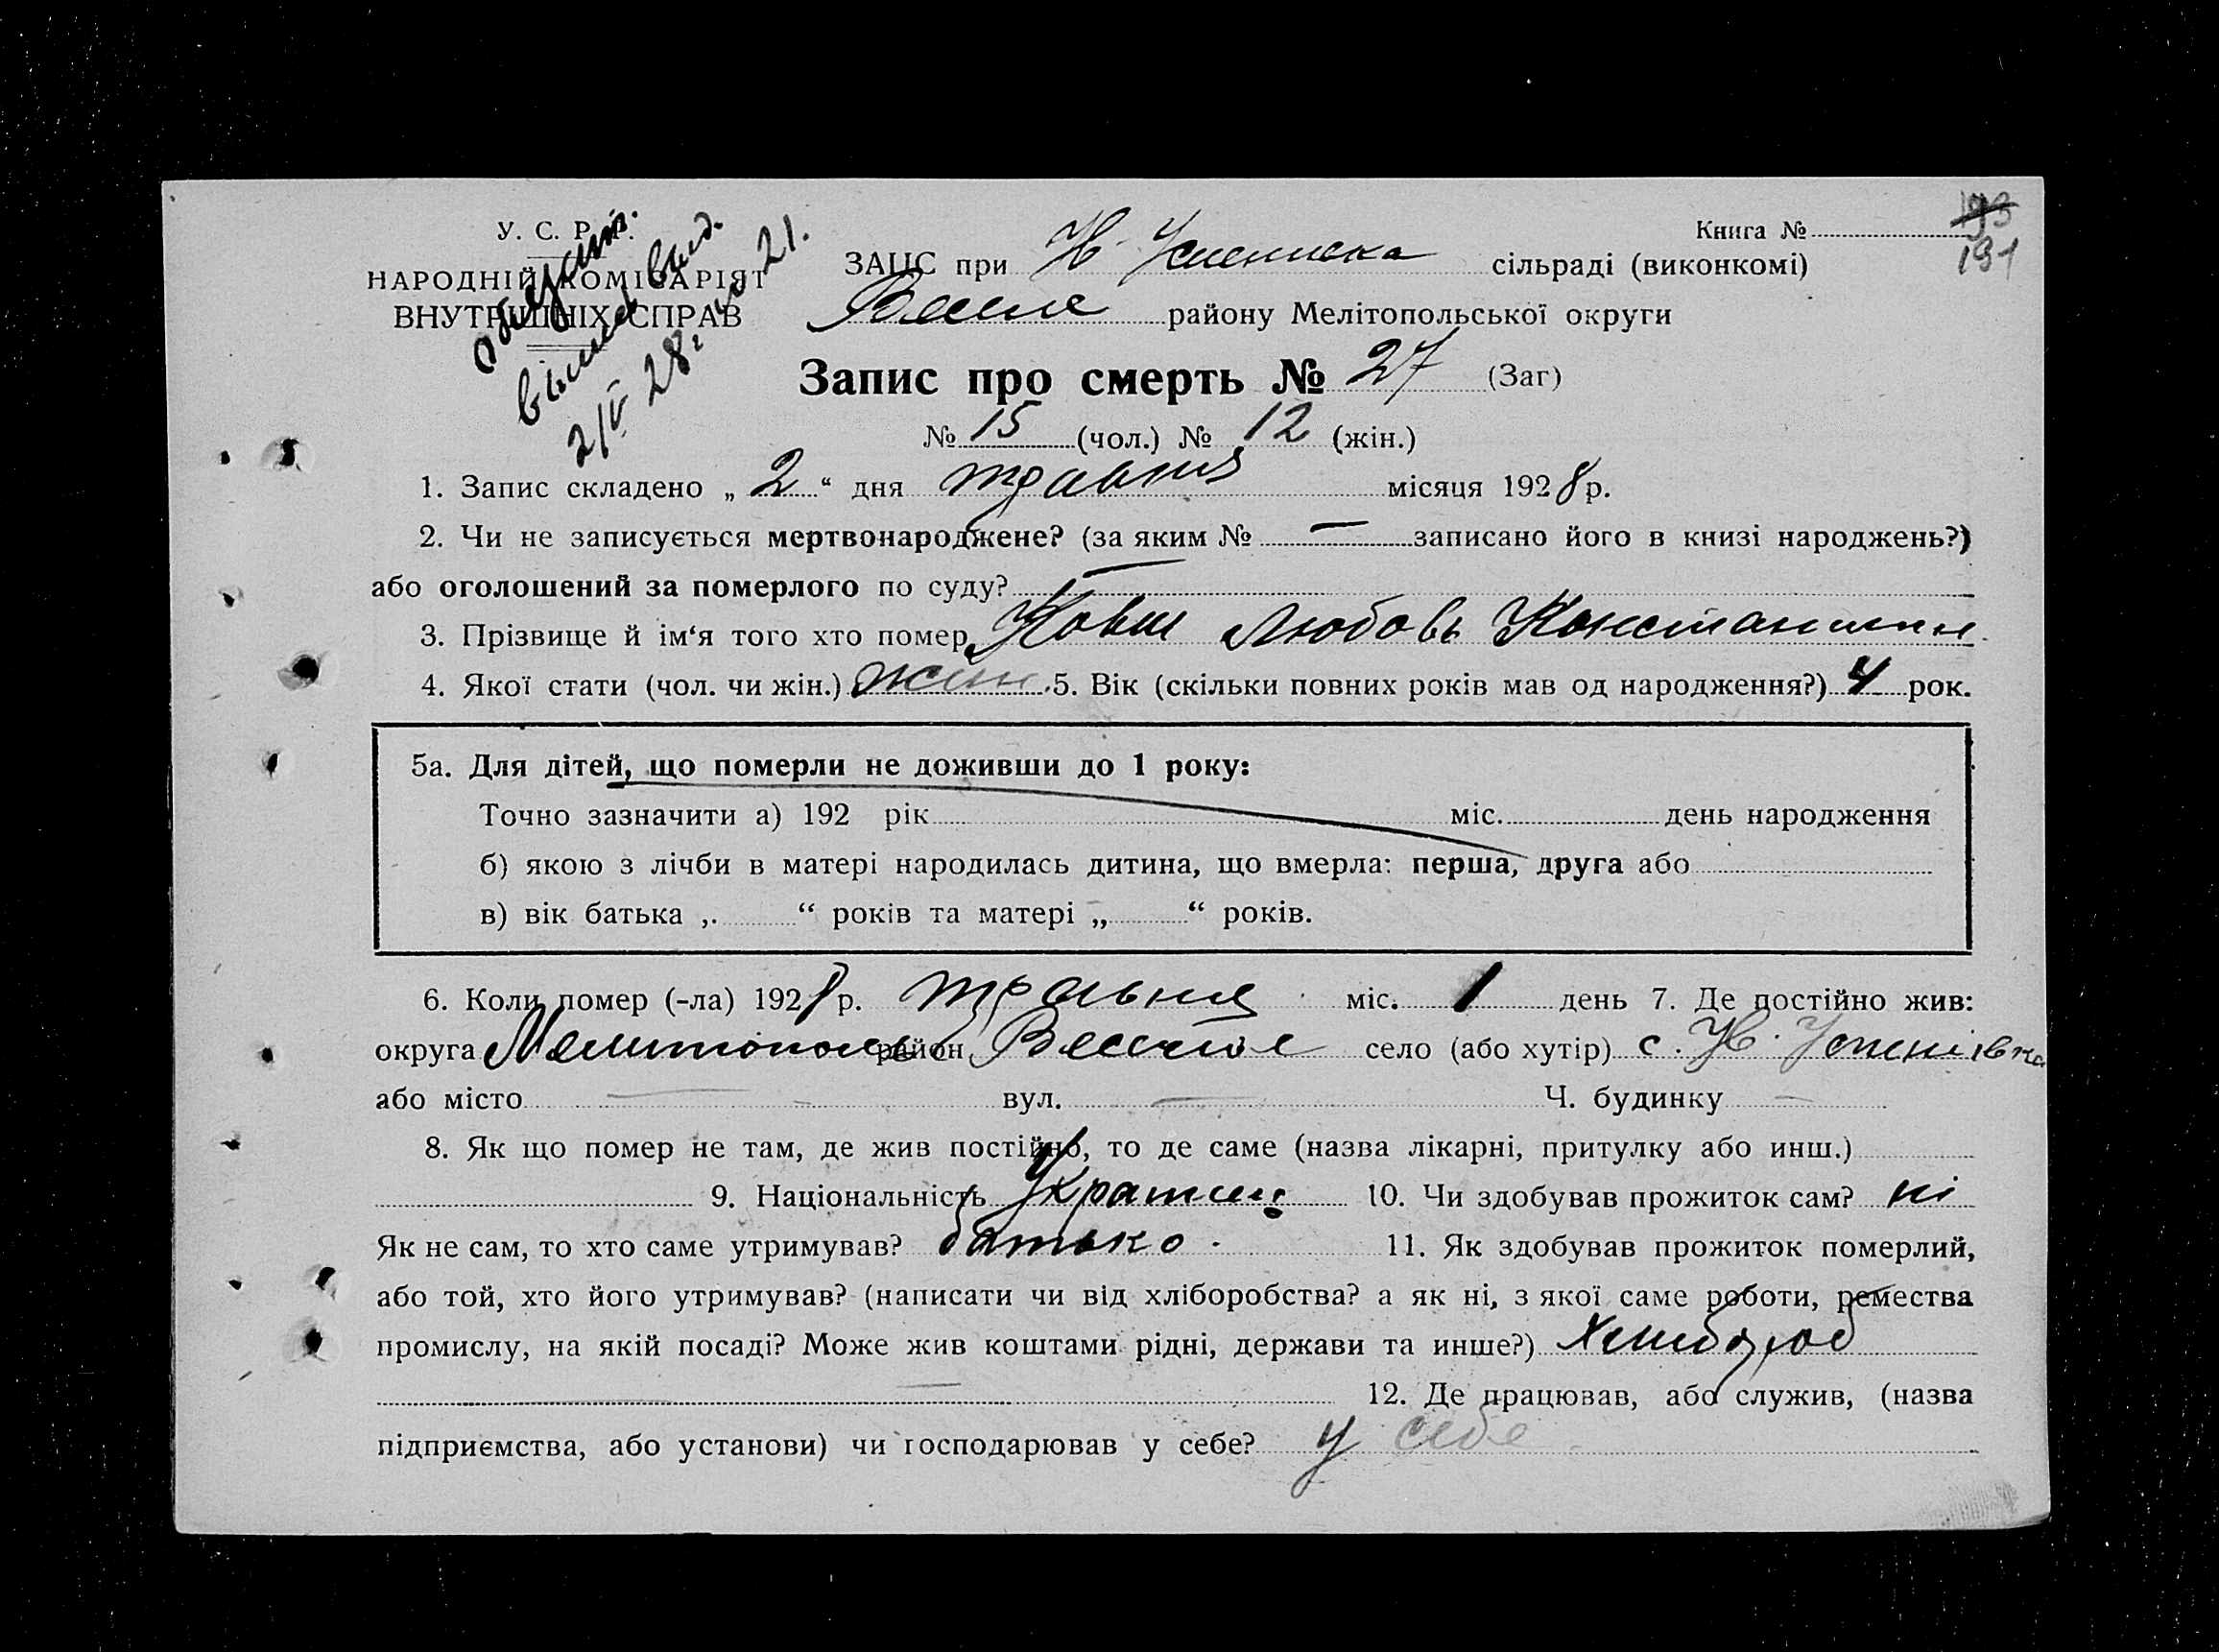 У. С. Р. Р.
НАРОДНІЙ КОМІСАРІЯТ
ВНУТРІШНІХ СПРАВ
2/V 28 г. № 21.
Книга №
193
191
ЗАПС при Н Успениска сільраді (виконкомі)
Веселе району Мелітопольської округи
Запис про смерть № 27 (Заг)
№ 15 (чол.) № 12 (жін.)
1. Запис складено „ 2 “ дня травня місяця 1928 р.
2. Чи не записується мертвонароджене? (за яким № — записано його в книзі народжень?)
або оголошений за померлого по суду? —
3. Прізвище й ім‘я того хто помер Ковш Любовь Константин.
4. Якої стати (чол. чи жін.) жін. 5. Вік (скільки повних років мав од народження?) 4 рок.
5а. Для дітей, що померли не доживши до 1 року:
Точно зазначити а) 192 рік міс. день народження
б) якою з лічби в матері народилась дитина, що вмерла: перша, друга або
в) вік батька „ “ років та матері „ “ років.
6. Коли помер (-ла) 1928 р. травня міс. 1 день 7. Де постійно жив:
округа Мелитополь район Веселое село (або хутір) с. Н. Успенівка
або місто — вул. — Ч. будинку —
8. Як що помер не там, де жив постійно, то де саме (назва лікарні, притулку або инш.)
9. Національність Украинц 10. Чи здобував прожиток сам? ні
Як не сам, то хто саме утримував? батько. 11. Як здобував прожиток померлий,
або той, хто його утримував? (написати чи від хліборобства? а як ні, з якої саме роботи, ремества
промислу, на якій посаді? Може жив коштами рідні, держави та инше?) Хлибороб
— 12. Де працював, або служив, (назва
підприємства, або установи) чи господарював у себе? у себе